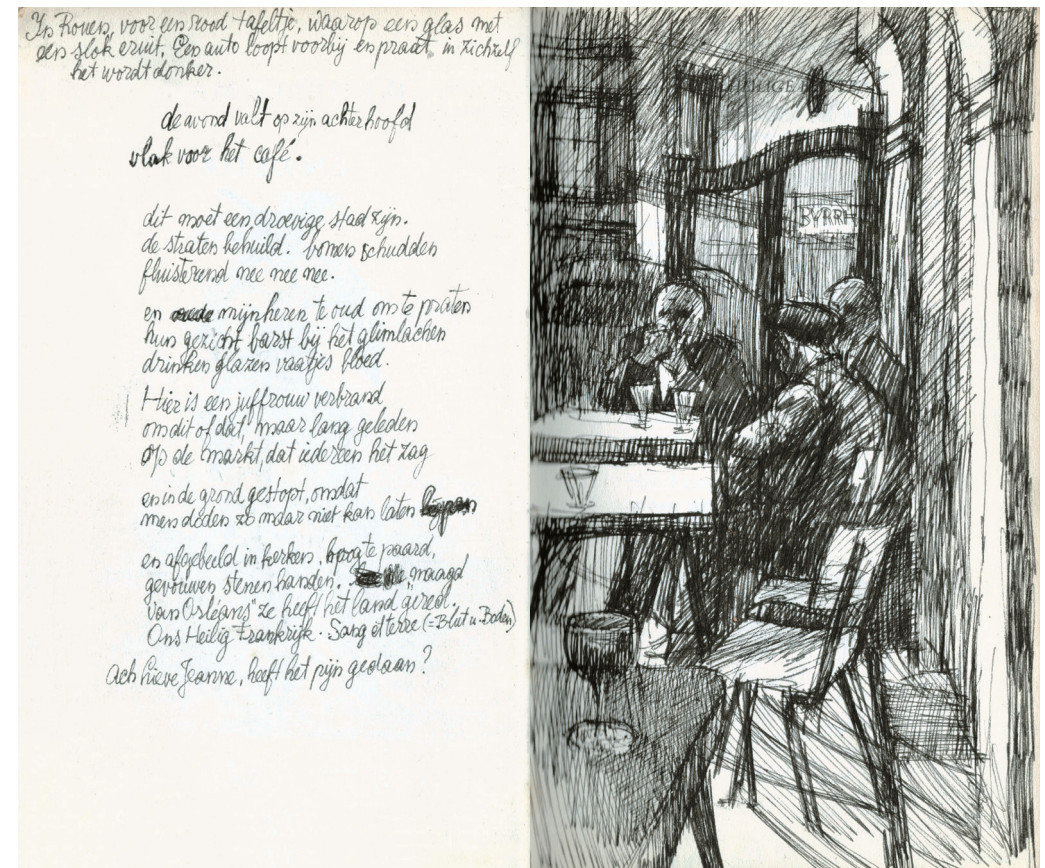 In Rouen, voor een rood tafeltje, waarop een glas met
een slok eruit. Een auto loopt voorbij en praat in zichzelf
het wordt donker.
de avond valt op zijn achterhoofd
vlak voor het café.
dit moet een droevige stad zijn.
de straten behuild. bomen schudden
fluisterend nee nee nee.
en mijnheren te oud om te praten
hun gezicht barst bij het glimlachen
drinken glazen vaatjes bloed.
Hier is een juffrouw verbrand
om dit of dat, maar lang geleden
op de markt, dat iedereen het zag
en in de grond gestopt, omdat
men doden zo maar niet kan laten
en afgebeeld in kerken, hoog te paard,
gevouwen stenen handen. maagd
van Orléans" ze heeft het land gered.
Ons Heilig Frankrijk. Sang et terre (=Blut u. Boden)
Ach lieve Jeanne, heeft het pijn gedaan?
BYRRH